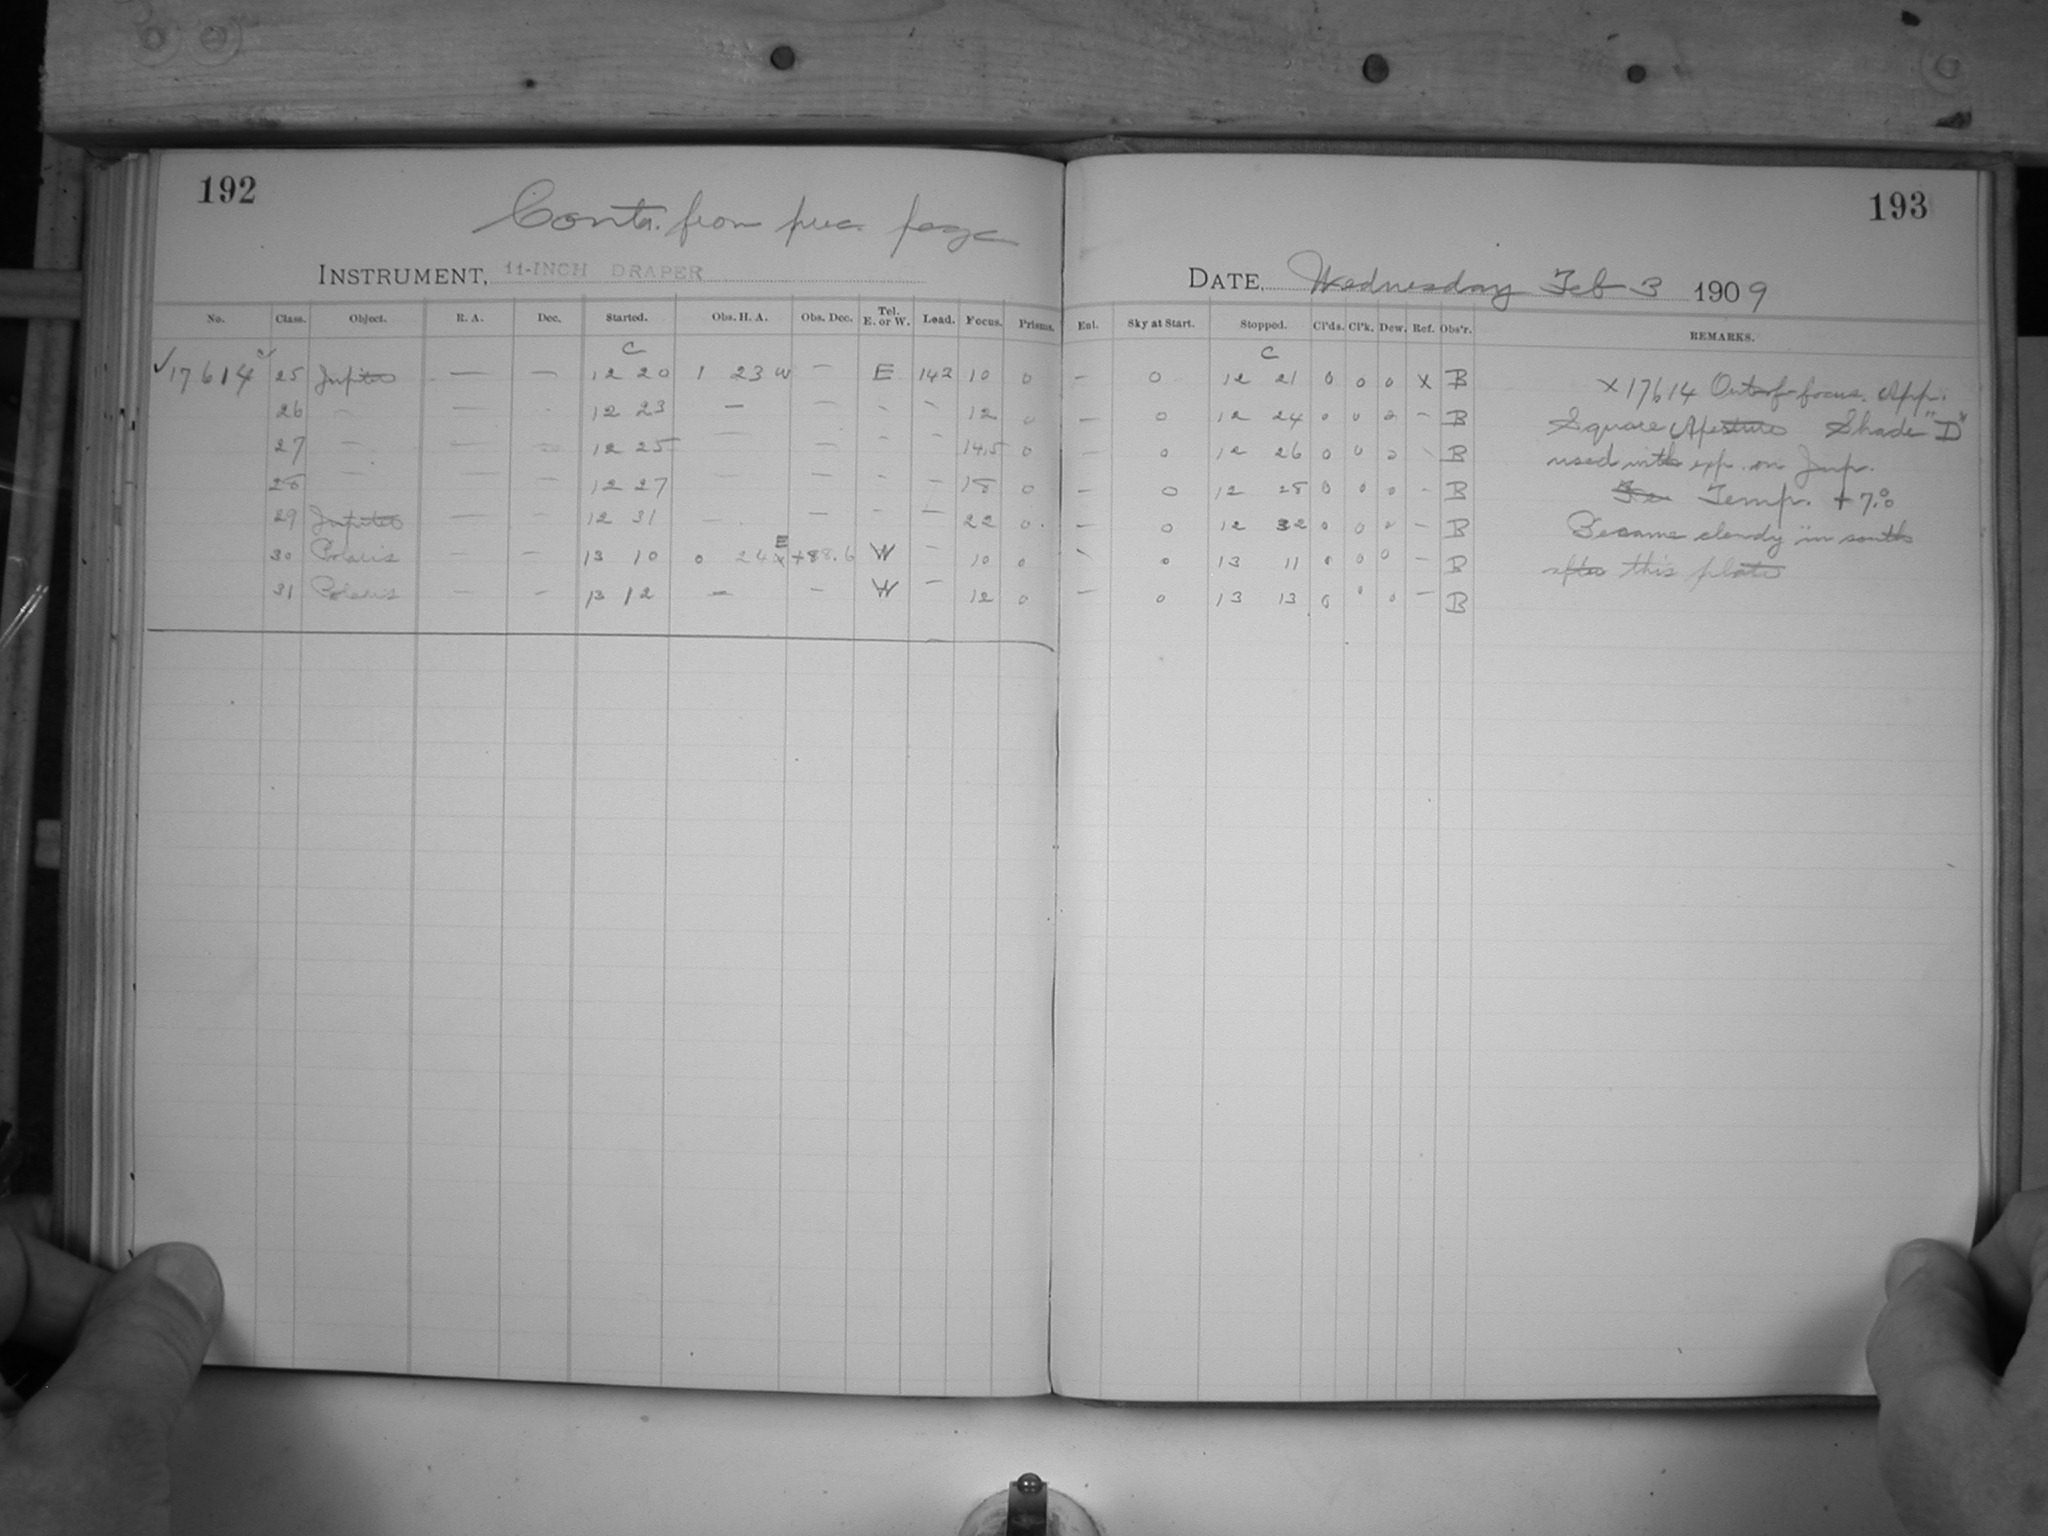 192
193
Contd. from prec. page
INSTRUMENT, 11-INCH DRAPER
DATE, Wednesday Feb 3 1909
No. Class. Object. R. A. Dec. Started. Obs. H. A. Obs. Dec. Tel. E. or W. Load. Focus. Prisms. Enl. Sky at Start. Stopped. Cl'ds. Cl'k. Dew. Ref. Obs'r. REMARKS.
C C
✓17614 25 Jupiter — — 12 20 1 23 W — E 142 10 0 — 0 12 21 0 0 0 X B X 17614 Out of focus. App.
26 — — . 12 23 — — - — 12 0 — 0 12 24 0 0 0 — B Square Aperture Shade "D"
27 — — — 12 25 — — - 14.5 0 — 0 12 26 0 0 0 - B used with exp. on Jup.
28 — — — 12 27 — - — 18 0 — 0 12 28 0 0 0 - B Temp. +7.°0
29 Jupiter — — 12 31 — - - — 22 0 — 0 12 32 0 0 0 — B Became cloudy in south
30 Polaris — — 13 10 0 24 E +88.6 W — 10 0 - 0 13 11 0 0 0 — B after this plate
31 Polaris — — 13 12 — — W — 12 0 — 0 13 13 0 0 0 — B